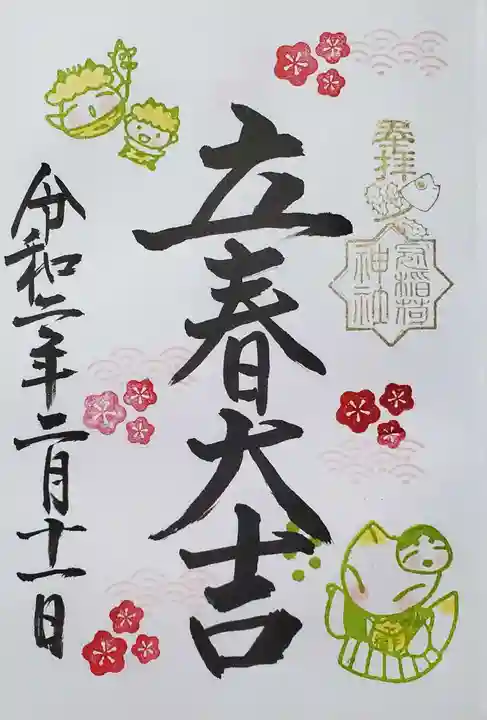 奉拝
稲荷
神社
立春大吉
令和二年二月十一日